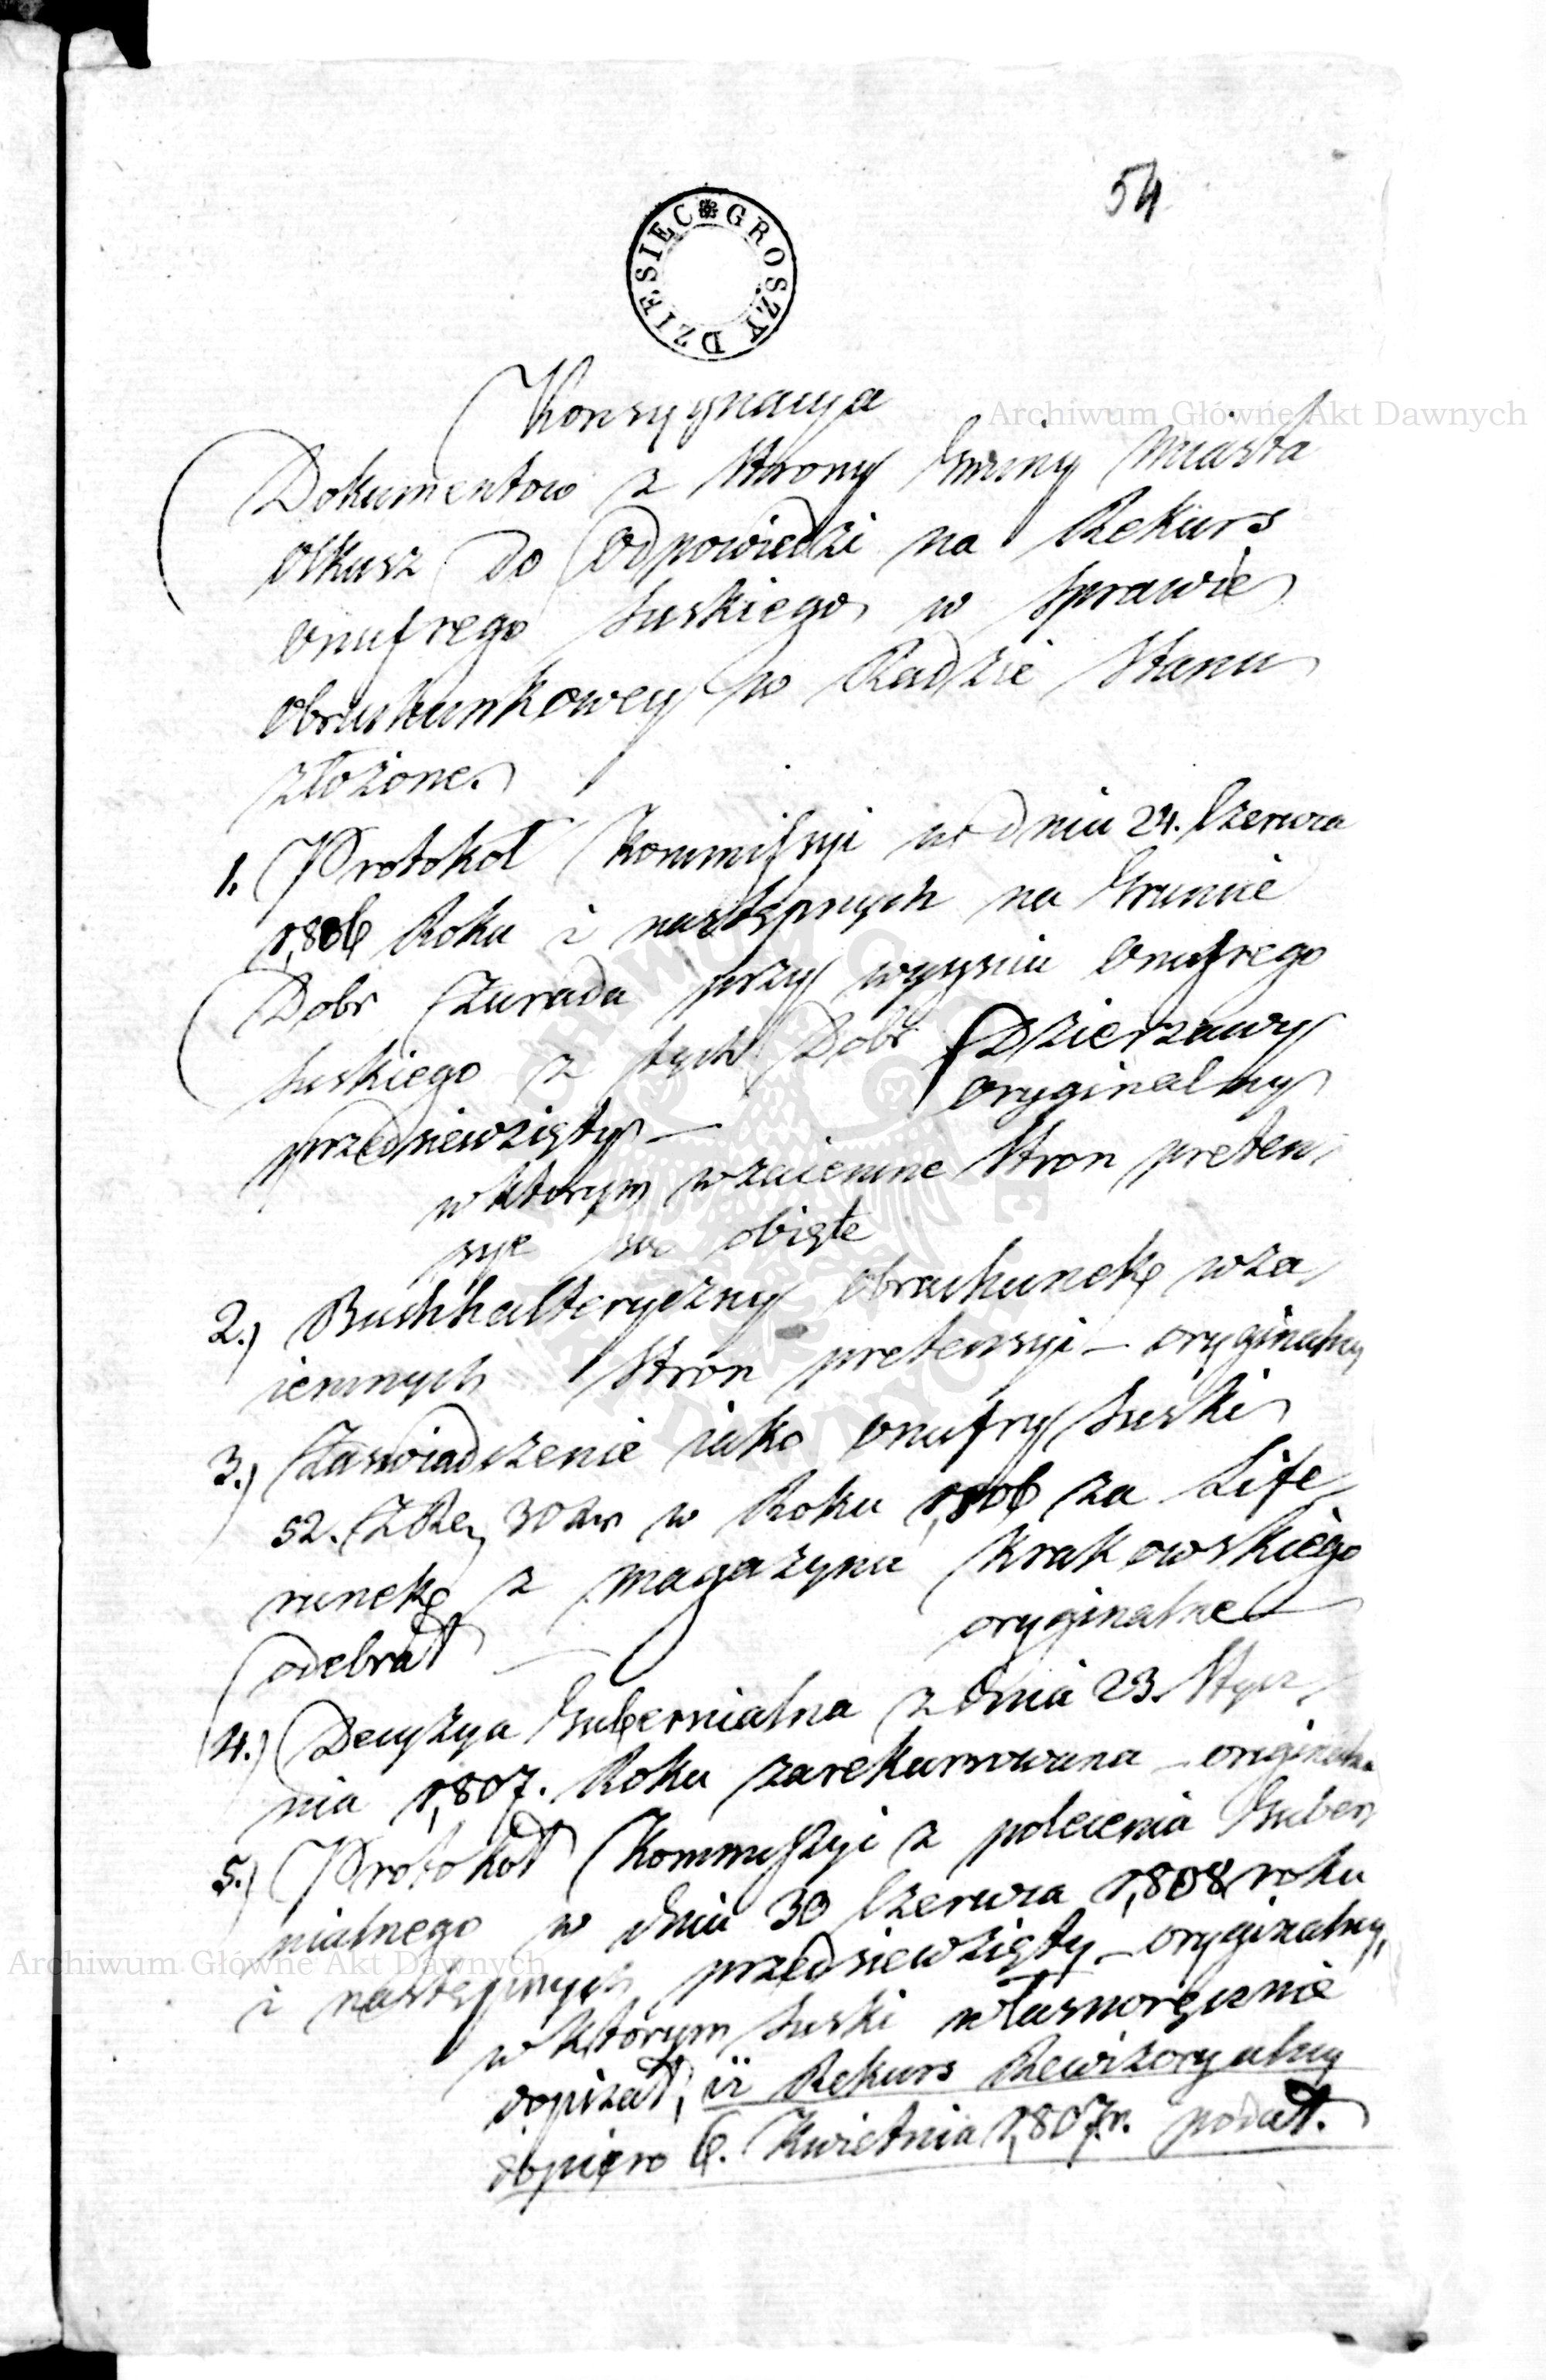 54
DZIESIEC GROSZY
Archiwum Główne Akt Dawnych
Konsygnacya
Dokumentow z Strony Gminy Miasta
Olkusz do Odpowiedzi na Rekurs
Onufrego Suskiego w Sprawie
Obrachunkowey w Radzie Stanu
złożone.
1. Protokoł Kommissyi w dniu 24. Czerwca
1,806 Roku i następnych na Gruncie
Dobr Żurada przy wyyściu Onufrego
Suskiego z tych Dobr Dzierzawy
przedsiewzięty — oryginalny
w ktorym wzaiemne Stron preten,
sye są obięte
2.) Buchhalteryczny Obrachunek wza,
iemnych Stron pretensyi — oryginalny
3.) Zaswiadczenie iako Onufry Suski
52. ZRe, 30 xr w Roku 1,806 za Life,
runek z magazynu Krakowskiego
odebrał — oryginalne
4.) Decyzya Gubernialna z dnia 23. Stycz,
nia 1,807. Roku zarekurrowana — originalna
5.) Protokoł Kommyssyi z polecenia Guber,
nialnego w dniu 30 Czerwca 1,808 roku
Archiwum Główne Akt Dawnych
i następnych przedsiewzięty — oryginalny,
w ktorym Suski własnoręcznie
dopisał, iż Rekurs Rewizoryalny
dopiero 6. Kwietnia 1,807. r. podał.